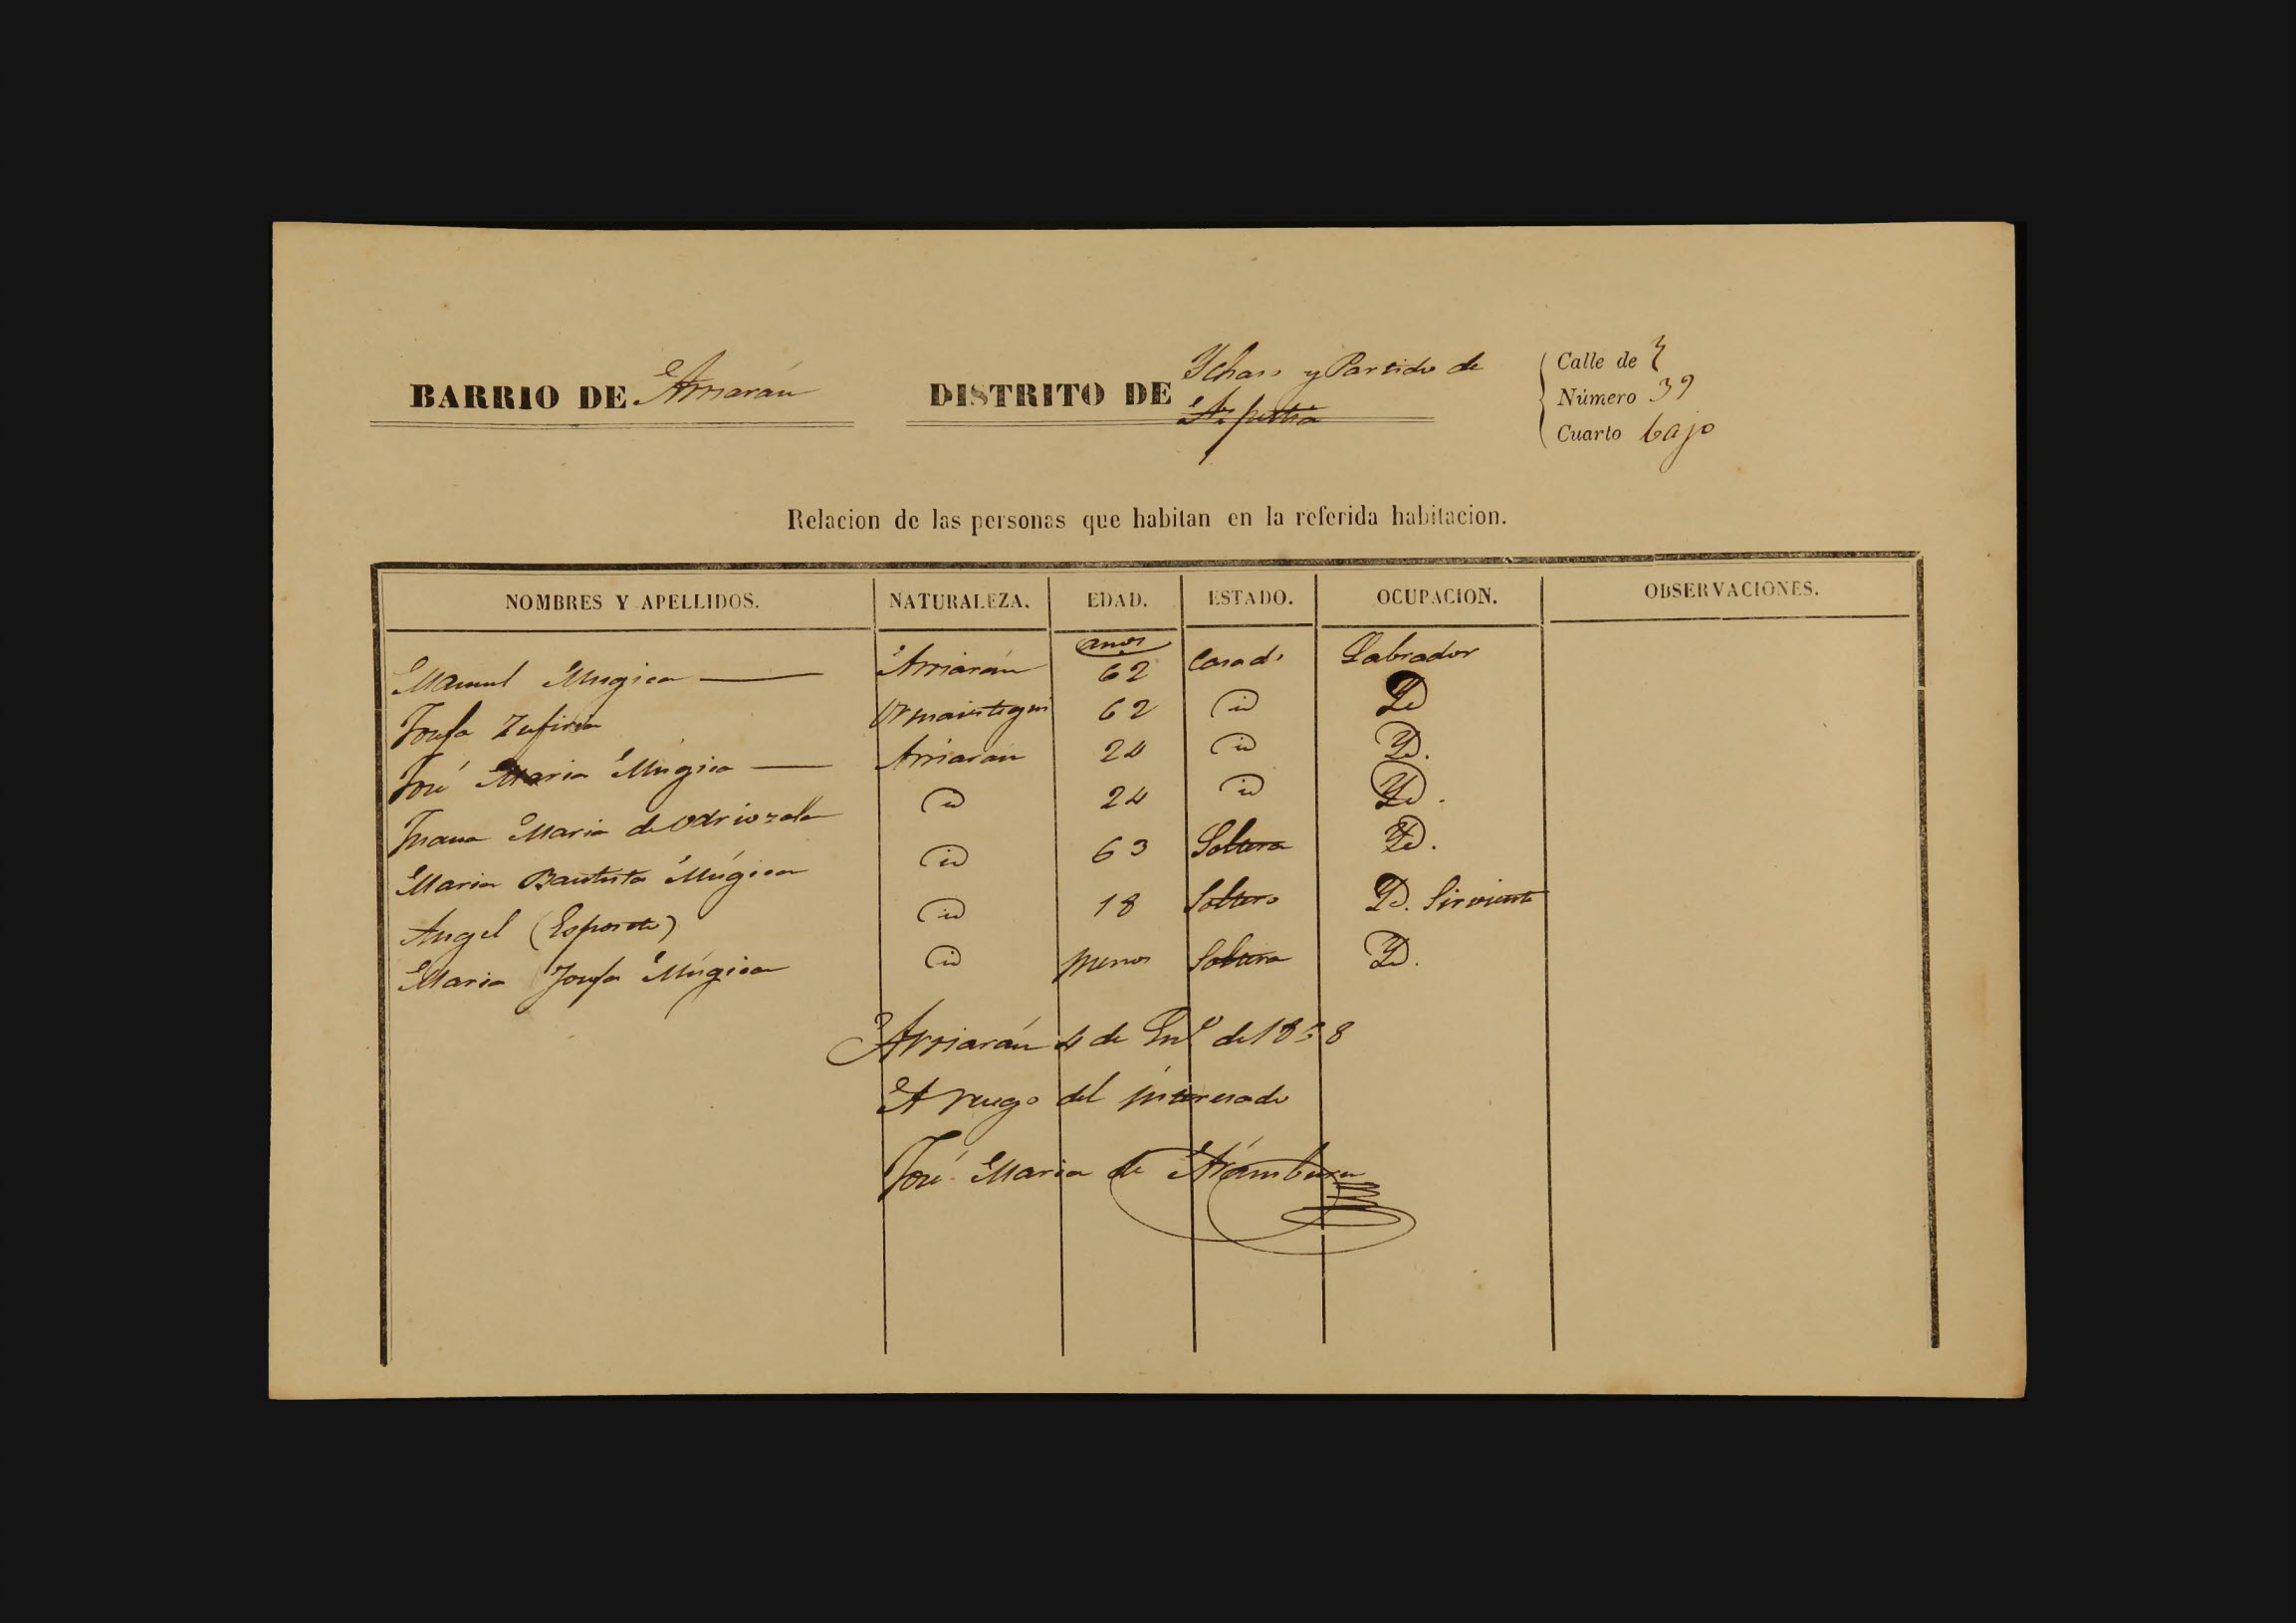 BARRIO DE Arriarán DISTRITO DE Ychaso y Partido de
Azpeitia
Calle de
Número 39
Cuarto bajo
Relacion de las personas que habitan en la referida habitacion.
NOMBRES Y APELLIDOS. NATURALEZA. EDAD. ESTADO. OCUPACION. OBSERVACIONES.
años
Manuel Mugica Arriarán 62 Casado Labrador
Josefa Zufiria Ormaiztegui 62 id Yd
José Maria Múgica Arriaran 24 id Yd.
Juana Maria de Odriozola id 24 id Yd.
Maria Bautista Múgica id 63 Soltera Yd.
Angel (Esposito) id 18 Soltero Yd. Sirviente
Maria Josefa Múgica id menor Soltera Yd.
Arriarán 4 de En.º de 1858
A ruego del interesado
José Maria de Aramburu